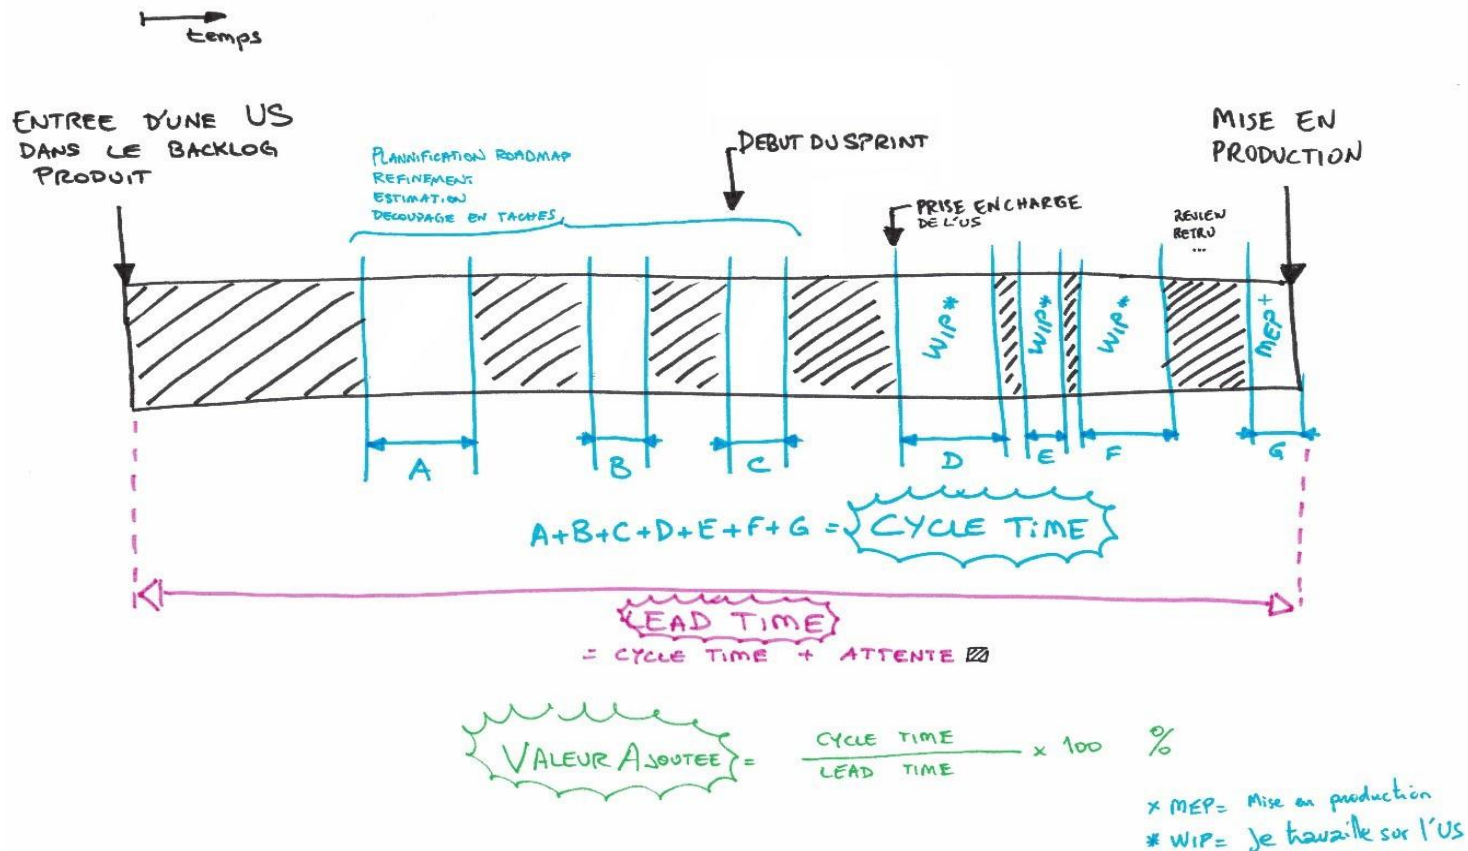 temps
ENTREE D'UNE US
DANS LE BACKLOG
PRODUIT
PLANNIFICATION ROADMAP
REFINEMENT
ESTIMATION
DECOUPAGE EN TACHES
DEBUT DU SPRINT
PRISE EN CHARGE
DE L'US
MISE EN
PRODUCTION
REVIEW
RETRO
...
WIP*
WIP*
WIP*
MEP+
A
B
C
D
E
F
G
A+B+C+D+E+F+G = CYCLE TIME
LEAD TIME
= CYCLE TIME + ATTENTE
VALEUR AJOUTEE = CYCLE TIME
LEAD TIME
× 100 %
× MEP= Mise en production
* WIP= Je travaille sur l'US